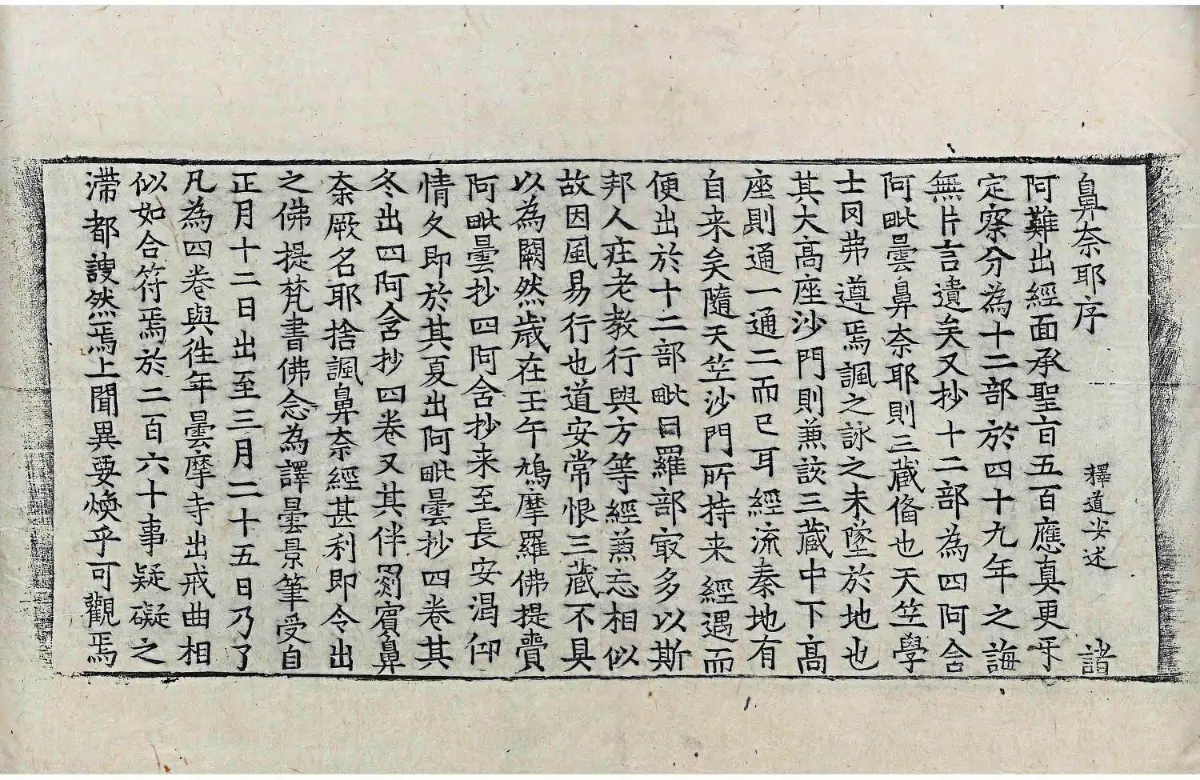 鼻奈耶序 釋道安述 諸
阿難出經面承聖旨五百應真更牙
定察分為十二部於四十九年之誨
無片言遺矣又抄十二部為四阿含
阿毗曇鼻奈耶則三藏俻也天竺學
士罔弗遵焉諷之詠之未墜於地也
其大高座沙門則兼該三藏中下高
座則通一通二而已耳經流秦地有
自来矣隨天竺沙門所持来經遇而
便出於十二部毗曰羅部㝡多以斯
邦人莊老教行與方等經兼忘相似
故因風易行也道安常恨三藏不具
以為闕然歲在壬午鳩摩羅佛提賷
阿毗曇抄四阿含抄来至長安渴仰
情久即於其夏出阿毗曇抄四卷其
冬出四阿含抄四卷又其伴罽賓鼻
奈厥名耶捨諷鼻奈經甚利即令出
之佛提梵書佛念為譯曇景筆受自
正月十二日出至三月二十五日乃了
凡為四卷與往年曇摩寺出戒曲相
似如合符焉於二百六十事疑礙之
滯都謏然焉上聞異要煥乎可觀焉